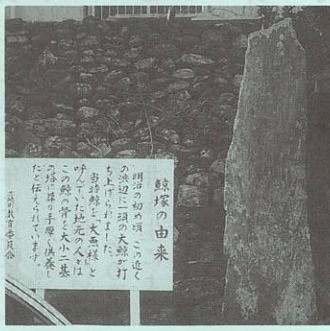 鯨塚の由来
明治の初め頃、この近く
の浜辺に一頭の大鯨が打
ち上げられました。
当時鯨を、大魚様」と
呼んでいた地元の人々は
この鯨の骨を大小二基
の塔に葬り手厚く供養し
たと伝えられています。
町教育委員会